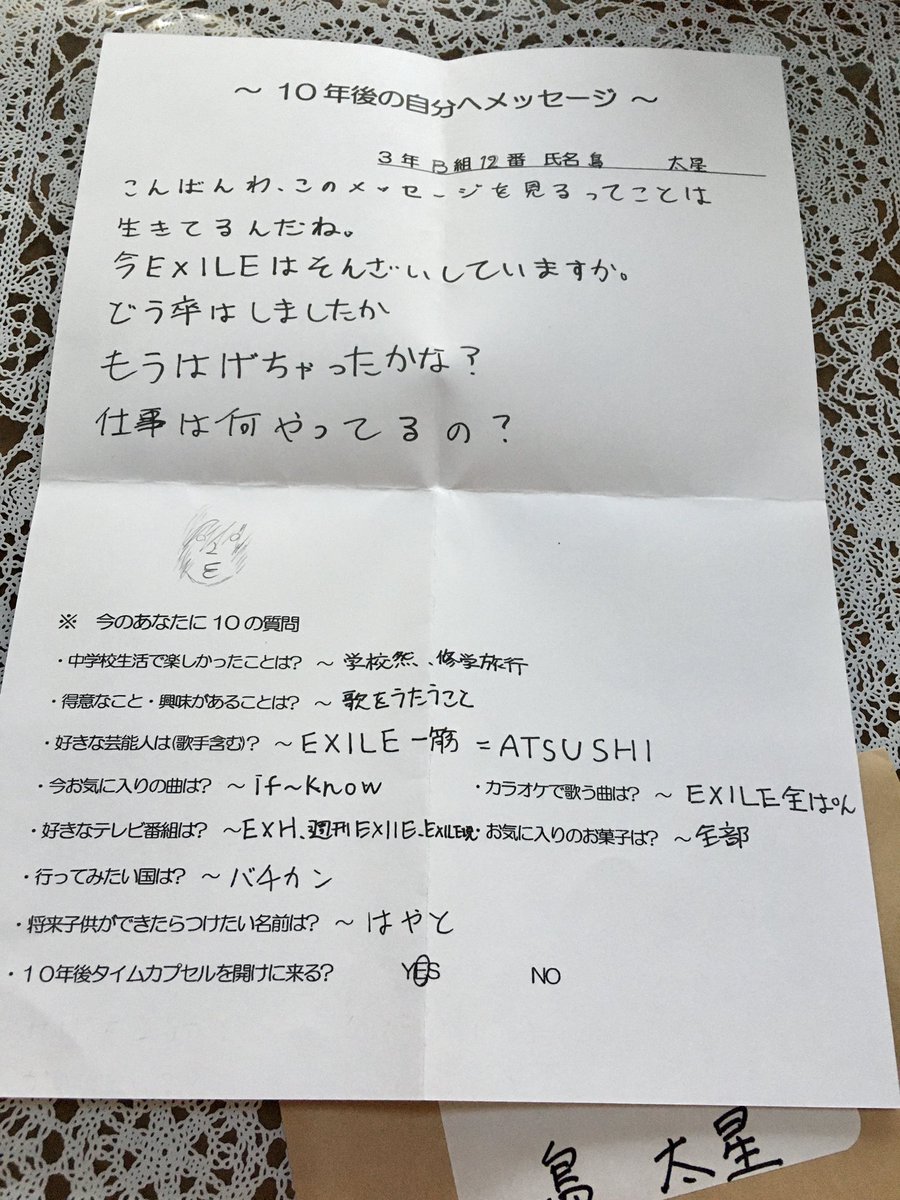 ～ 10年後の自分へメッセージ ～
3年 B組 12番 氏名 島 太星
こんばんわ、このメッセージを見るってことは
生きてるんだね。
今EXILEはそんざいしていますか。
どう卒はしましたか
もうはげちゃったかな?
仕事は何やってるの?
※ 今のあなたに10の質問
・中学校生活で楽しかったことは? ～ 学校祭、修学旅行
・得意なこと・興味があることは? ～ 歌をうたうこと
・好きな芸能人は(歌手含む)? ～ EXILE 一筋 = ATSUSHI
・今お気に入りの曲は? ～ if～know ・カラオケで歌う曲は? ～ EXILE全ぱん
・好きなテレビ番組は? ～EXH、週刊EXIIE、EXILE魂 ・お気に入りのお菓子は? ～全部
・行ってみたい国は? ～ バチカン
・将来子供ができたらつけたい名前は? ～ はやと
・10年後タイムカプセルを開けに来る? YES NO
島 太星